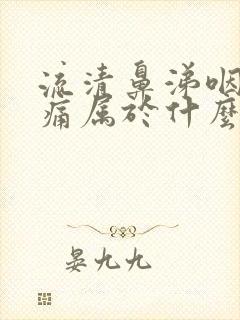 流清鼻涕咽
痛属於什麼
晏九九